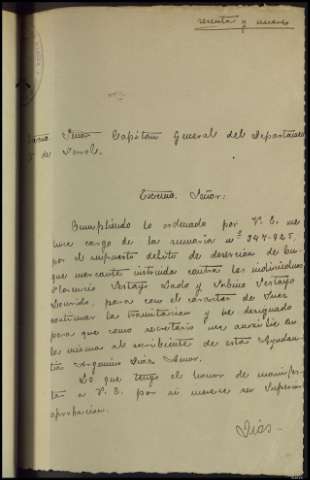 Señor Capitán General del Departamen
de Ferrol.
Excmo. Señor:
Cumpliendo lo ordenado por V. E. me
hice cargo de la sumaria nº 347-925,
por el supuesto delito de deserción de bu
que mercante instruida contra los individuos
Florencio Lado y Sabino
Lourido, para con el carácter de Juez
continuar la tramitación y he designado
para que como secretario me auxilie en
la misma al escribiente de esta Ayudan
tía Argimiro Díaz
Lo que tengo el honor de manifes
tar a V. E. por si merece su Superior
aprobación.
Dios.-